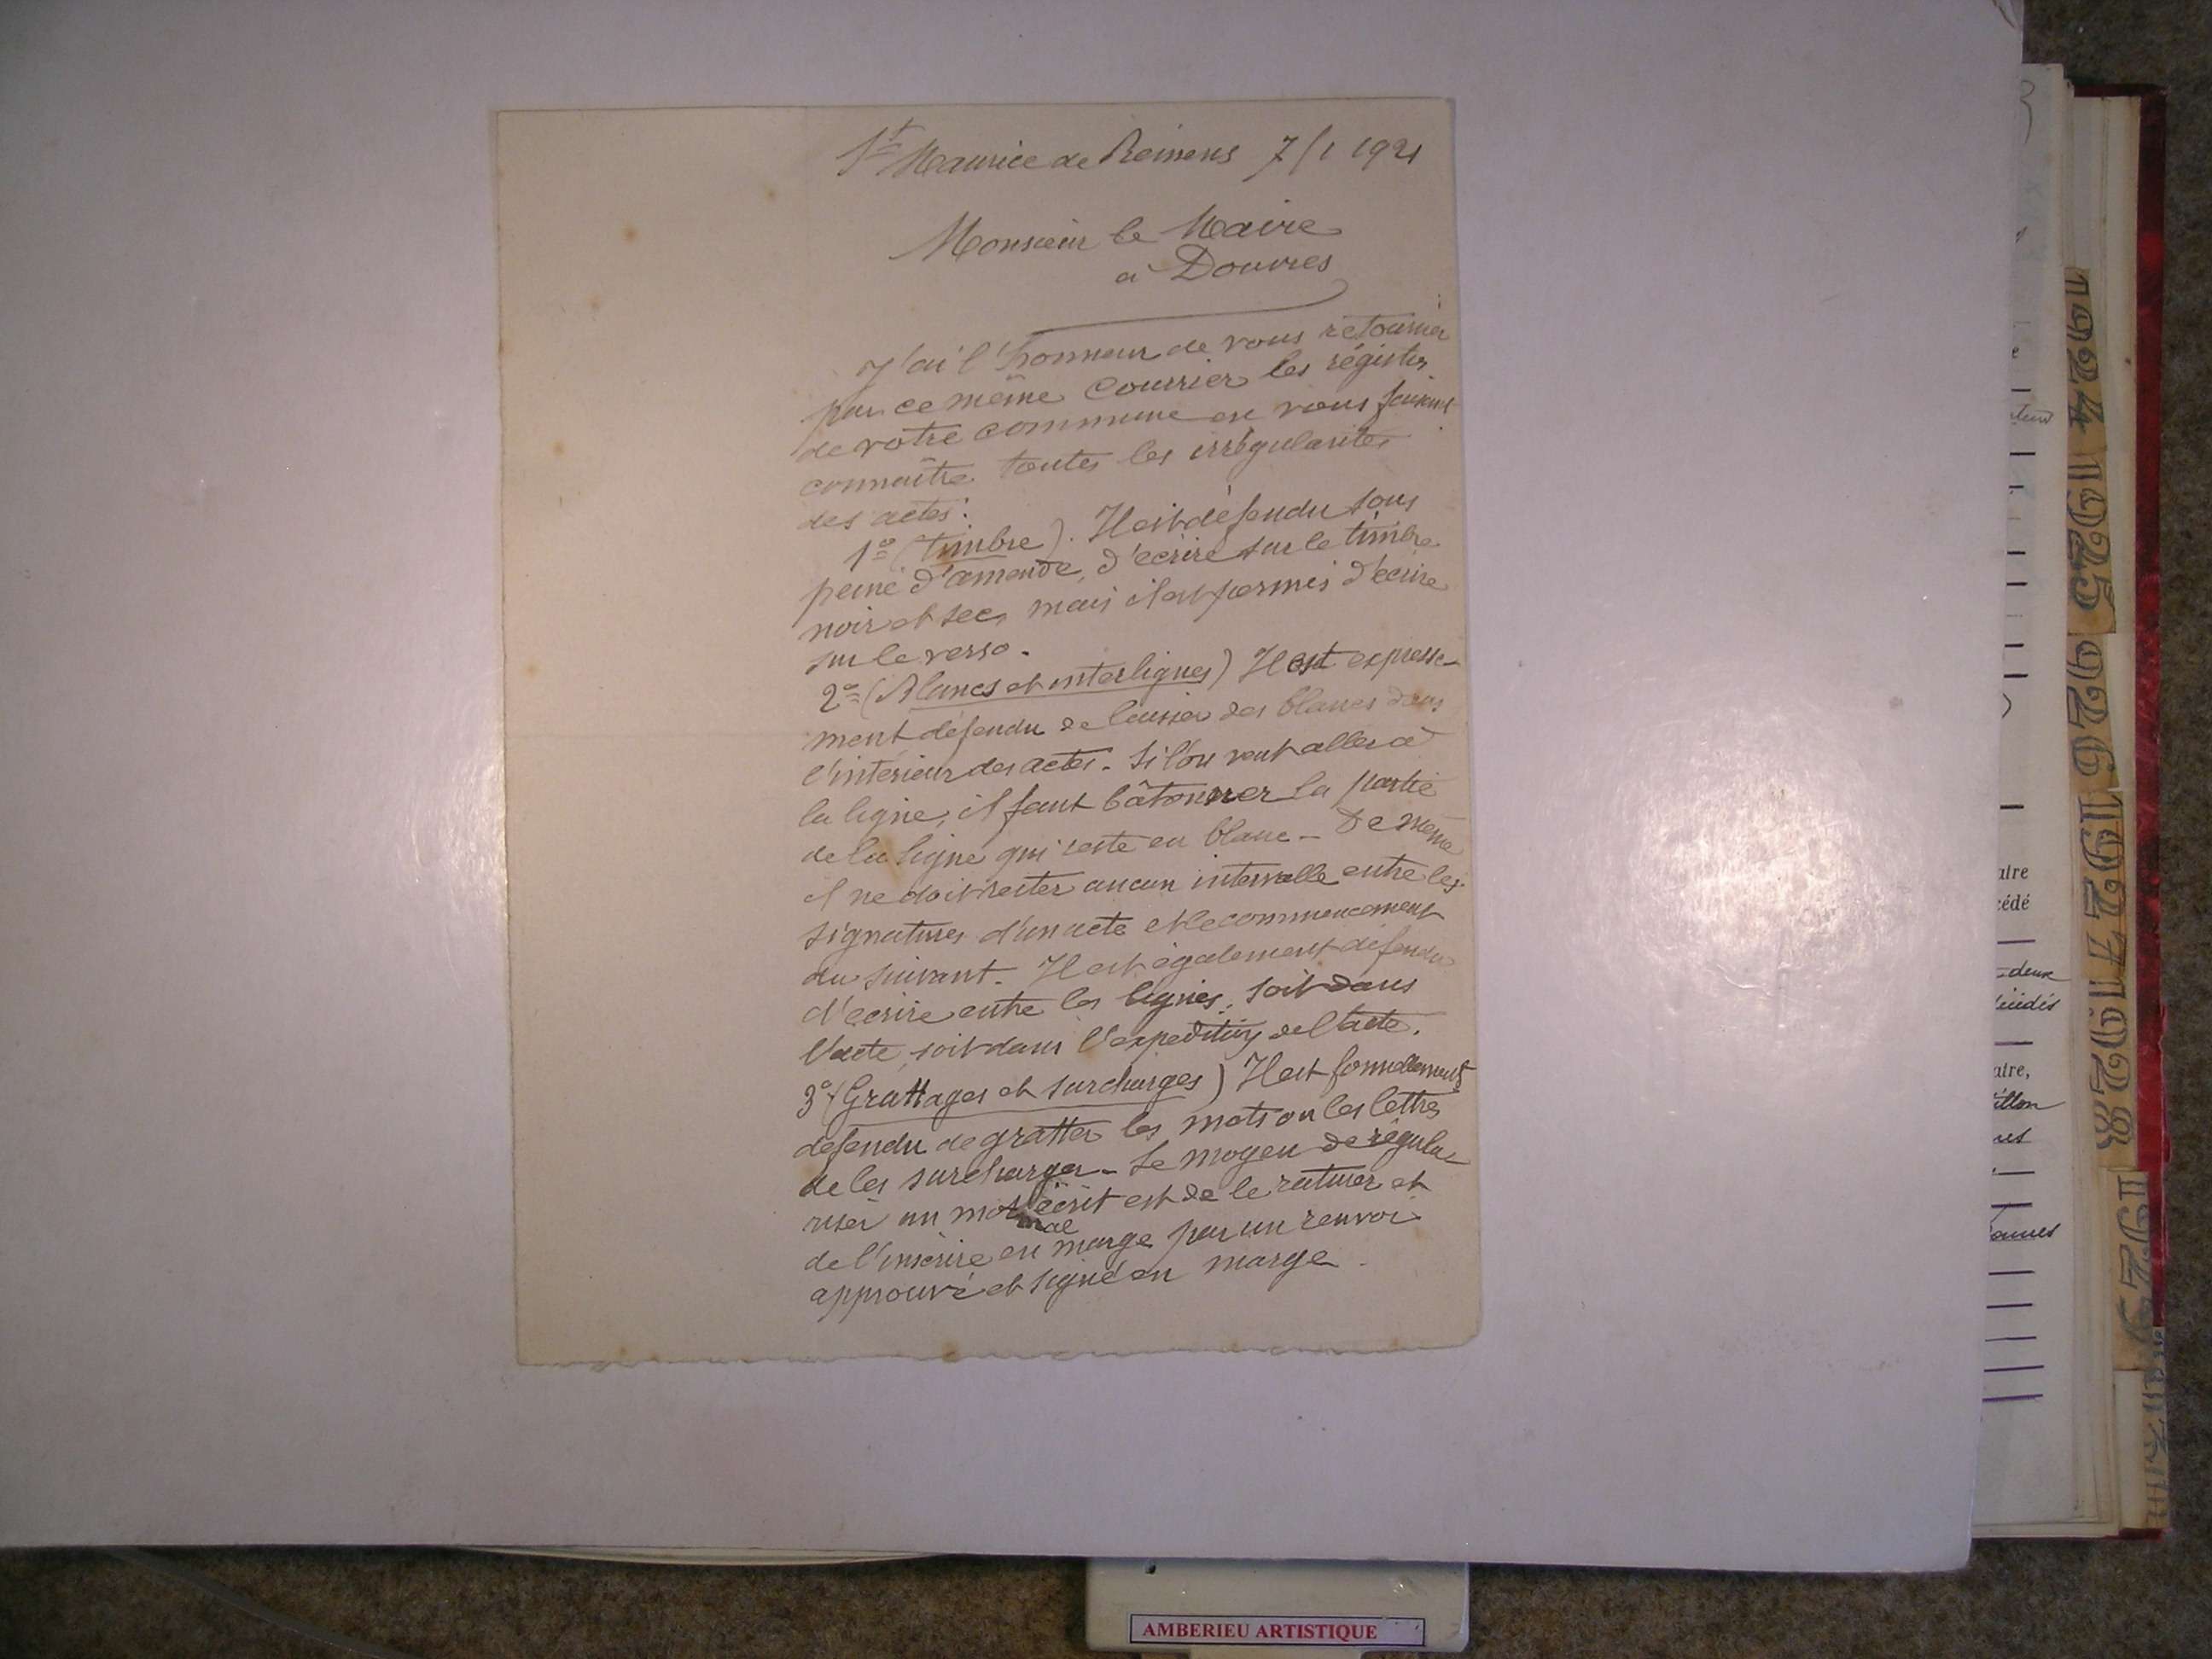 St Maurice de Remens 7/1 1921
Monsieur le Maire
à Douvres
J'ai l'honneur de vous retourner
par ce même courrier les régistres
de votre commune en vous faisant
connaître toutes les irrégularités
des actes :
1º (timbre). Il est défendu sous
peine d'amende, d'écrire sur le timbre
noir et sec, mais il est permis d'écrire
sur le verso.
2º (Blancs et interlignes) Il est expressé-
ment défendu de laisser des blancs dans
l'intérieur des actes. Si l'on veut aller à
la ligne, il faut bâtonner la partie
de la ligne qui reste en blanc - De même
il ne doit rester aucun intervalle entre les
signatures d'un acte et le commencement
du suivant. Il est également défendu
d'écrire entre les lignes, soit dans
l'acte, soit dans l'expédition de l'acte.
3º (Grattages et surcharges) Il est formellement
défendu de gratter les mots ou les lettres
de les surcharger - Le moyen de régula
riser un mot mal écrit est de le raturer et
de l'inscrire en marge par un renvoi
approuvé et signé en marge.
1924
1925
1926
1927
1928
1929
aire
cédé
deux
aire,
AMBERIEU ARTISTIQUE